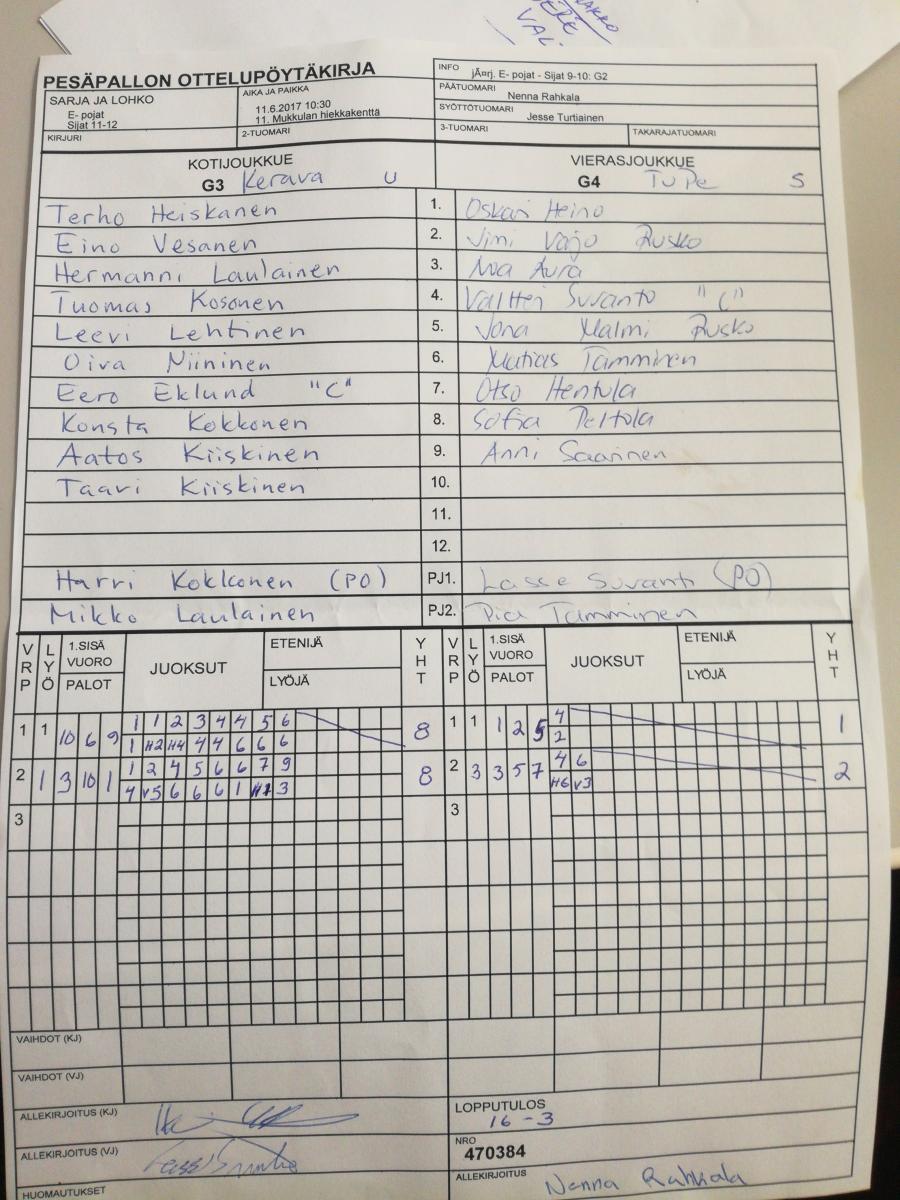 VALI
PESÄPALLON OTTELUPÖYTÄKIRJA
INFO jÃ¤rj. E- pojat - Sijat 9-10: G2
SARJA JA LOHKO
E- pojat
Sijat 11-12
AIKA JA PAIKKA
11.6.2017 10:30
11. Mukkulan hiekkakenttä
PÄÄTUOMARI Nenna Rahkala
SYÖTTÖTUOMARI Jesse Turtiainen
KIRJURI 2-TUOMARI 3-TUOMARI TAKARAJATUOMARI
KOTIJOUKKUE VIERASJOUKKUE
G3 Kerava U G4 TuPe S
Terho Heiskanen 1. Oskari Heino
Eino Vesanen 2. Jimi Varjo Rusko
Hermanni Laulainen 3. Noa Aura
Tuomas Kosonen 4. Valtteri Suvanto "C"
Leevi Lehtinen 5. Jona Malmi Rusko
Oiva Niininen 6. Matias Tamminen
Eero Eklund "C" 7. Otso Hentula
Konsta Kokkonen 8. Sofia Peltola
Aatos Kiiskinen 9. Anni Saarinen
Taavi Kiiskinen 10.
11.
12.
Harri Kokkonen (PO) PJ1. Lasse Suvanto (PO)
Mikko Laulainen PJ2. Pia Tamminen
VRP LYÖ 1.SISÄ VUORO PALOT JUOKSUT ETENIJÄ LYÖJÄ YHT VRP LYÖ 1.SISÄ VUORO PALOT JUOKSUT ETENIJÄ LYÖJÄ YHT
1 1 10 6 9 1 1 2 3 4 4 5 6 8 1 1 1 2 5 4 1
1 H2 H4 4 4 6 6 6 2
2 1 3 10 1 1 2 4 5 6 6 7 9 8 2 3 3 5 7 4 6 2
4 V5 6 6 6 1 3 H6 V3
3 3
VAIHDOT (KJ)
VAIHDOT (VJ)
ALLEKIRJOITUS (KJ)
LOPPUTULOS
16 - 3
ALLEKIRJOITUS (VJ)
NRO
470384
HUOMAUTUKSET
ALLEKIRJOITUS Nenna Rahkala